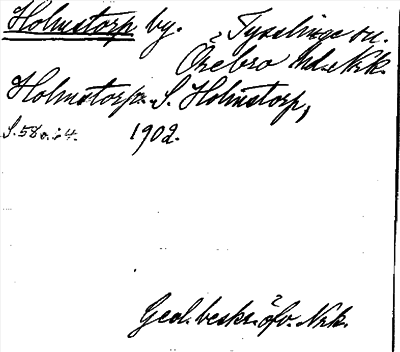 Holmstorp by. Tysslinge sn.
Örebro hd. Nrk.
Holmstorp. S. Holmstorp,
S. 58 o. 64. 1902.
Geol. beskr. öfv. Nrk.